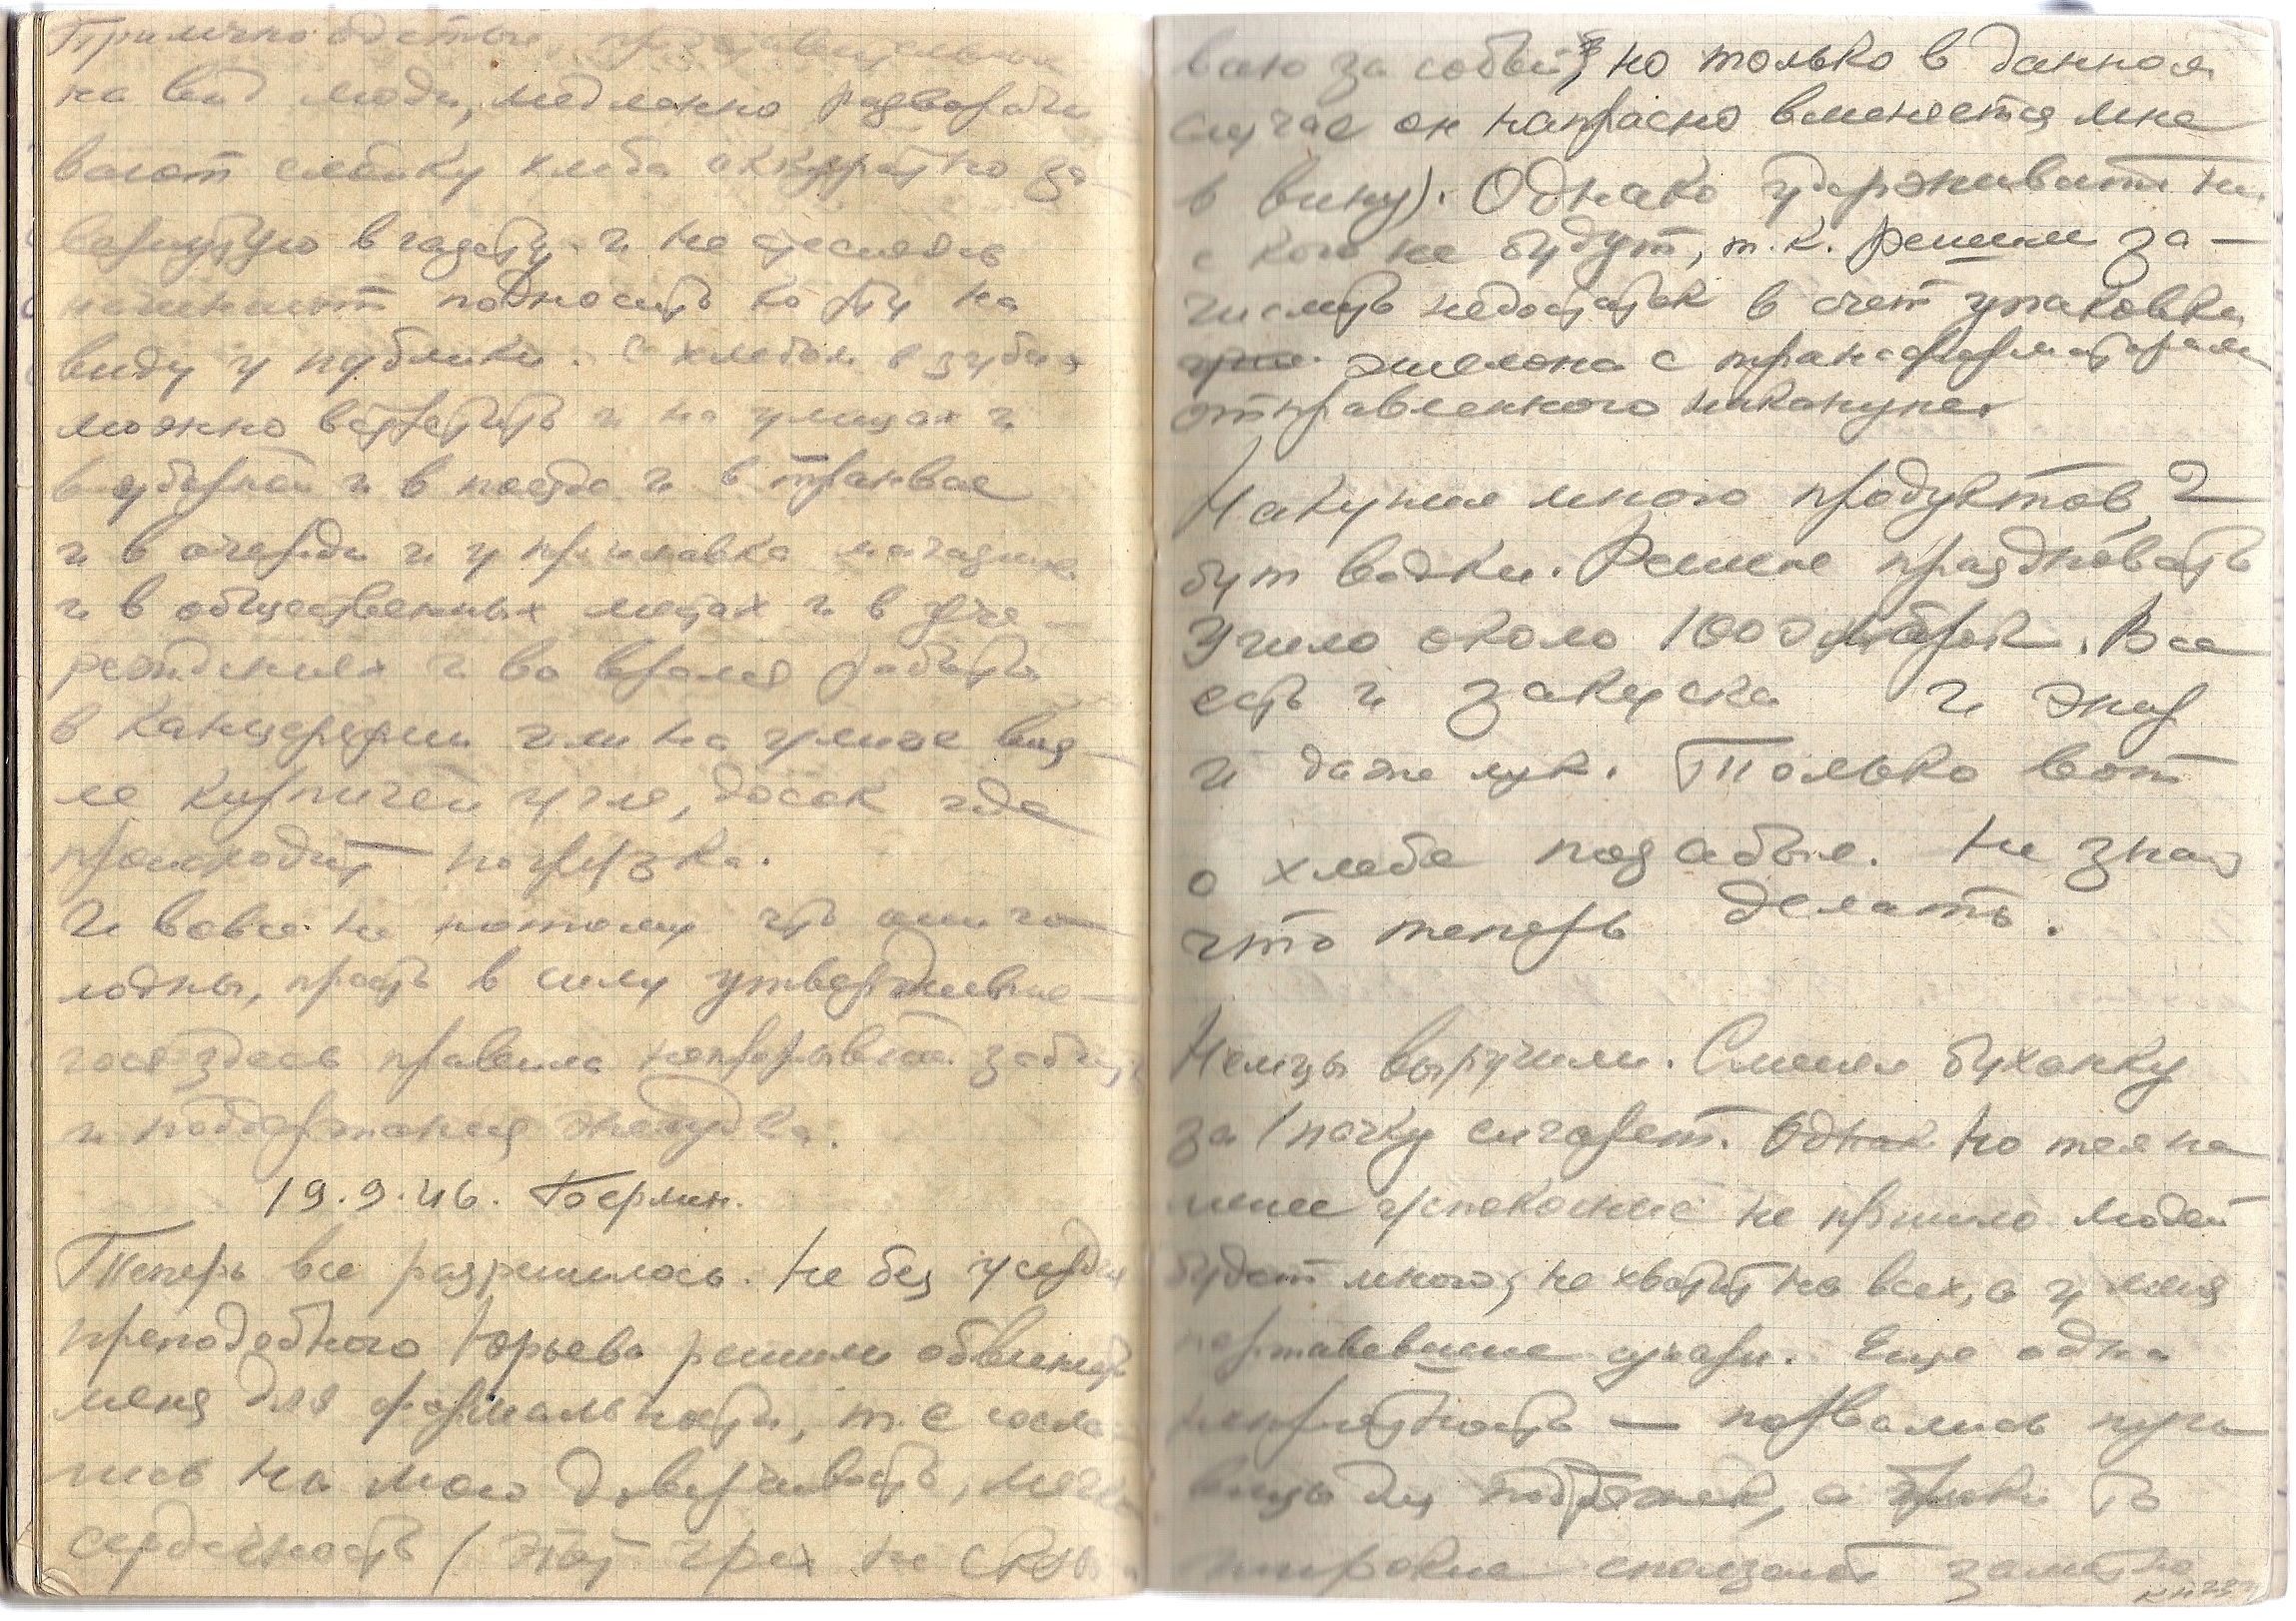 Прилично одетые, представительные
на вид люди, медленно разворачи
вают слойку хлеба аккуратно за-
вернутую в газету и не стесняясь
начинают подносить ко рту на
виду у публики. С хлебом в зубах
можно встретить и на улицах и
в уборной и в поезде и в трамвае
и в очереди и у прилавка магазина
и в общественных местах и в учре-
реждениях и во время работы
в канцелярии или на улице воз-
ле кирпичей угля, досок где
происходит погрузка.
И вовсе не потому что они го-
лодны, просто в силу утвердивше-
гося здесь правила непрерывной
и поддержания желудка.
19.9.46. Берлин.
Теперь все разрешилось. Не без усердия
преподобного Юрьева решили обвинить
меня для формальности, т.е сосла-
лись на мою доверчивость, мягко
сердечность (этот грех не скры
ваю за собой, но только в данном
случае он напрасно вменяется мне
в вину). Однако удерживать ни
с кого не будут, т.к. решили за-
числить недостаток в счет упаковки
эшелона с трансформаторами
отправленного накануне.
Накупил много продуктов, 2
бут водки. Решил праздновать
Ушло около 1000 марок. Все
есть и закуска и жир
и даже лук. Только вот
о хлебе позабыл. Не знаю
что теперь делать.
Немцы выручили. Сменял буханку
за 1 пачку сигарет. Однак Но тем не
менее успокоение не пришло людей
будет много, не хватит на всех, а у меня
зачерствевшие сухари. Еще одна
неприятность — порвались пуго
вицы для подтяжек, а брюки то
широкие сползают заметно